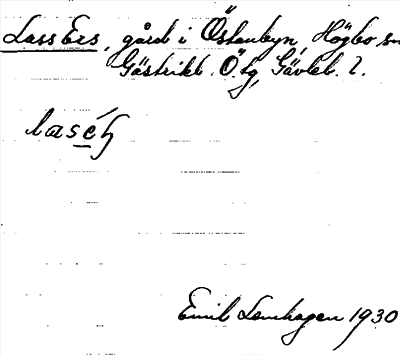 Lass Ers, gård i Östanbyn, Högbo sn
Gästrikl. Ö. tg, Gävleb. l.
laséʃ
Emil Lenhagen 1930